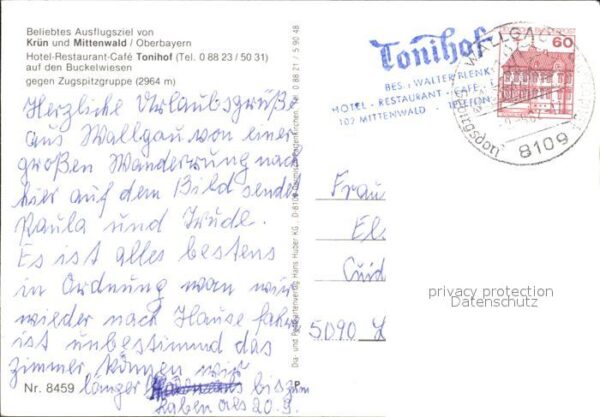 Beliebtes Ausflugsziel von
Krün und Mittenwald / Oberbayern
Hotel-Restaurant-Café Tonihof (Tel. 0 88 23 / 50 31)
auf den Buckelwiesen
gegen Zugspitzgruppe (2964 m)
Herzliche Urlaubsgrüße
aus Wallgau von einer
großen Wanderung nach
hier auf dem Bild sende
Paula und Trudl.
Es ist alles bestens
in Ordnung wan wir
wieder nach Hause fahr
ist unbestimmd das
zimmer können wir
länger bis zum
haben als 20.9.
Nr. 8459
Dia- und Postkartenverlag Hans Huber KG
5 90 48
Tonihof
BES. WALTER
HOTEL - RESTAURANT - CAFE
102 MITTENWALD - TELEFON
WALLGAU
8109
60
Frau
El
5090
privacy protection
Datenschutz